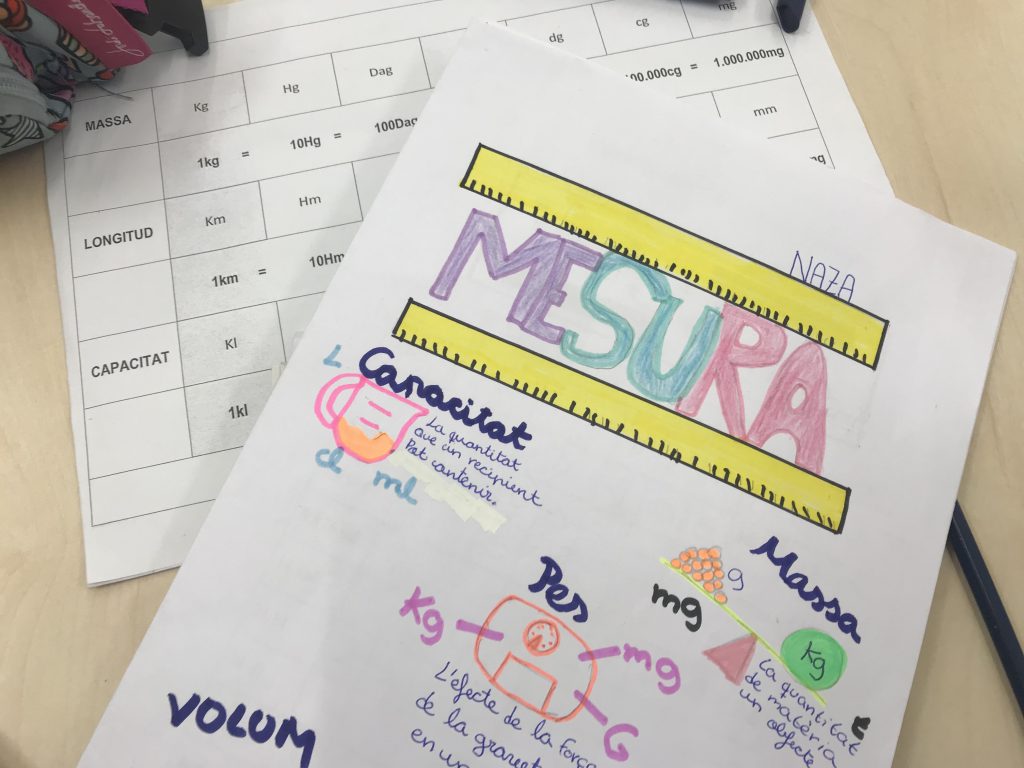 MASSA
Kg
Hg
Dag
dg
cg
mg
1kg = 10Hg = 100Dag
00.000cg = 1.000.000mg
mm
LONGITUD
Km
Hm
1km = 10Hm
CAPACITAT
Kl
1kl
NAZA
MESURA
L
Capacitat
La quantitat
que un recipient
Pot contenir.
cl
ml
Pes
Kg
mg
G
L'efecte de la força
de la gravet
en un
Massa
g
mg
Kg
La quantitat
de matèria
un objecte
VOLUM